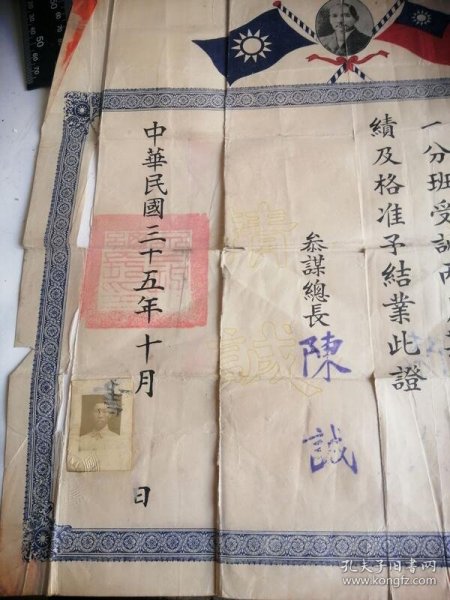 一分班受訓
績及格准予結業此證
參謀總長 陳誠
精誠
中華民國三十五年十月 日
孔夫子旧书网
www.kongfz.com